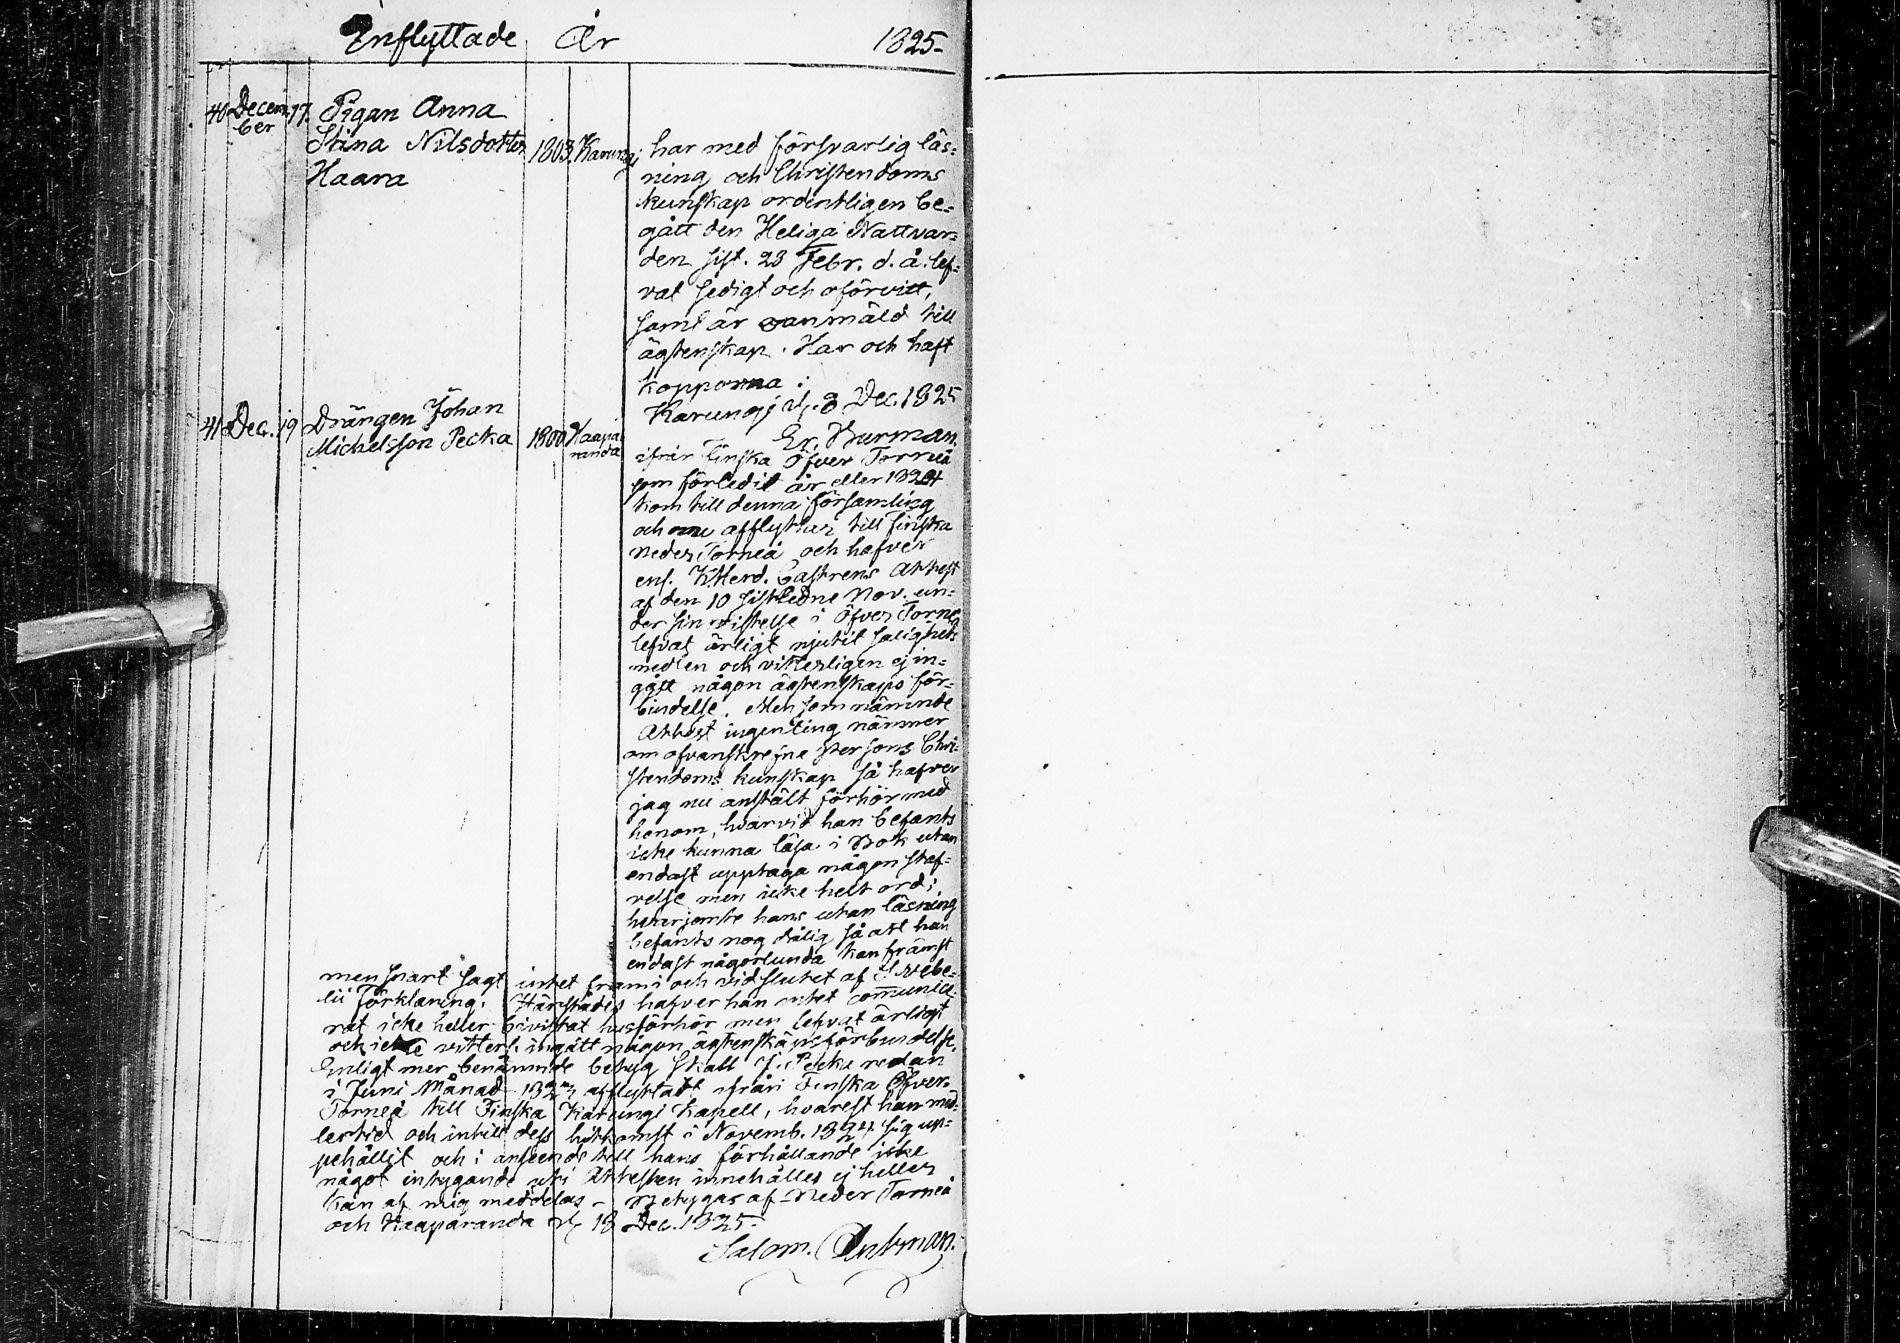 Inflyttade År 1825.
40 Decem- 17. Pigan Anna
ber
Stina Nilsdotter 1803. Karungi
Haara
har med försvarlig läs-
ning och Christendoms
kunskap ordentligen be-
gått den Heliga Nattvar-
den sist. 23 Febr. d. å. lef-
vat sedigt och oförvitt,
samt är anmäld till
ägtenskap. Har och haft
kopporna.
Karungi d. 8 Dec. 1825
Er. Burman.
41 Dec. 19 Drängen Johan
Michelsson Pecka 1800 Haapa
randa
ifrån Finska Öfver Torneå
som förledit år eller 1824
kom till denna församling
och nu afflyttar till finska
Neder Torneå och hafver
enl. Castrens Attest
af den 10 sistledne Nov. un-
der sin vistelse i Öfver Torneå
lefvat ärligt njutit salighets
medlen och vitterligen ej in-
gått någon ägtenskaps för-
bindelse. Men som nämnde
Attest ingenting nämner
om ofvanskrefne persons Chri-
stendoms kunskap så hafver
jag nu anstält förhör med
honom, hvarvid han befants
icke kunna läsa i Bok utan
endast upptaga någon staf-
velse men icke helt ord;
hvarjemte hans utan läsning
befants nog dålig så att han
endast någorlunda kan främst
men snart sagt intet fram i och vid slutet af Svebe-
lii Förklaring. Härstädes hafver han intet communice-
rat icke heller bivistat husförhör men lefvat ärligt
och icke vitterl. ingått någon ägtenskapsförbindelse.
Enligt mer benämnde betyg skall J. Pecka redan
i Juni Månad 1824 afflyttat ifrån Finska Öfver-
Torneå till Finska Karungi Kapell, hvarest han med-
lertid och intill dess hitkomst i Novemb. 1824 sig up-
pehållit och i anseende till hans förhållande icke
något intygande uti Attesten innehålles ej heller
kan af mig meddelas – Betygas af Neder Torneå
och Haaparanda d. 18 Dec. 1825.
Salom. Antman.